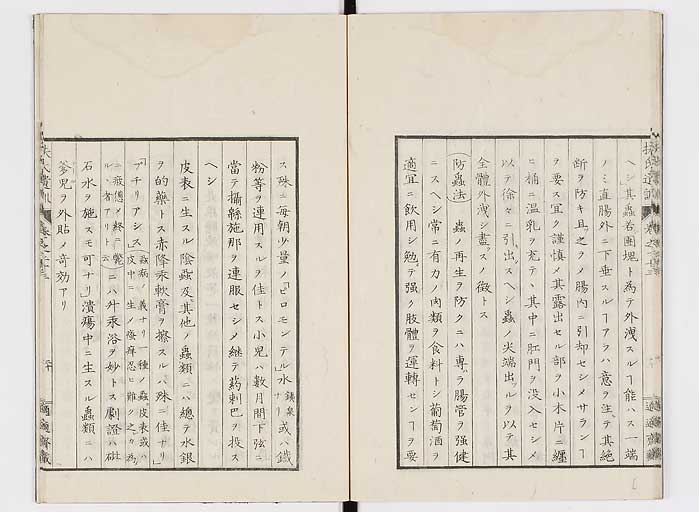 ヘシ其蟲若團塊ト為テ外洩スルヿ能ハス一端
ノミ直腸外ニ下垂スルヿアラハ意ヲ注テ其絶
斷ヲ防キ且之ヲメ腸内ニ引却セシメサランヿ
ヲ要ス宜ク謹慎メ其露出セル部ヲ小木片ニ纏
ヒ桶ニ温乳ヲ充テ其中ニ肛門ヲ没入セシメ
以テ徐々ニ引出スヘシ蟲ノ尖端出ルヲ以テ其
全體外洩シ盡スノ徴トス
防蟲法 蟲ノ再生ヲ防クニハ專ラ腸管ヲ强健
ニスヘシ常ニ有力ノ肉類ヲ食料トシ葡萄酒ヲ
適宜ニ飲用シ勉テ强ク肢體ヲ運轉センヿヲ要
ス殊ニ毎朝少量ノピロモンテル水鑛泉ナリ或ハ鐵
粉等ヲ連用スルヲ佳トス小兒ハ數月間下弦ニ
當テ攝綿施那ヲ連服セシメ継テ葯剌巴ヲ投ス
ヘシ
皮表ニ生スル陰蟲及其他ノ蟲類ニハ總テ水銀
ヲ的藥トス赤降汞軟膏ヲ擦スルハ殊ニ佳ナリ
フチリアシス蟲病ノ義ナリ一種ノ蟲皮表或ハ
皮中ニ生ノ瘙痒忍ヒ難ク之カ為
ニ疲憊メ終ニ斃
ルヽ者アリト云ニハ升汞浴ヲ妙トス劇證ハ砒
石水ヲ施スモ可ナリ潰瘍中ニ生スル蟲類ニハ
爹兒ヲ外貼メ奇効アリ
適適齋藏